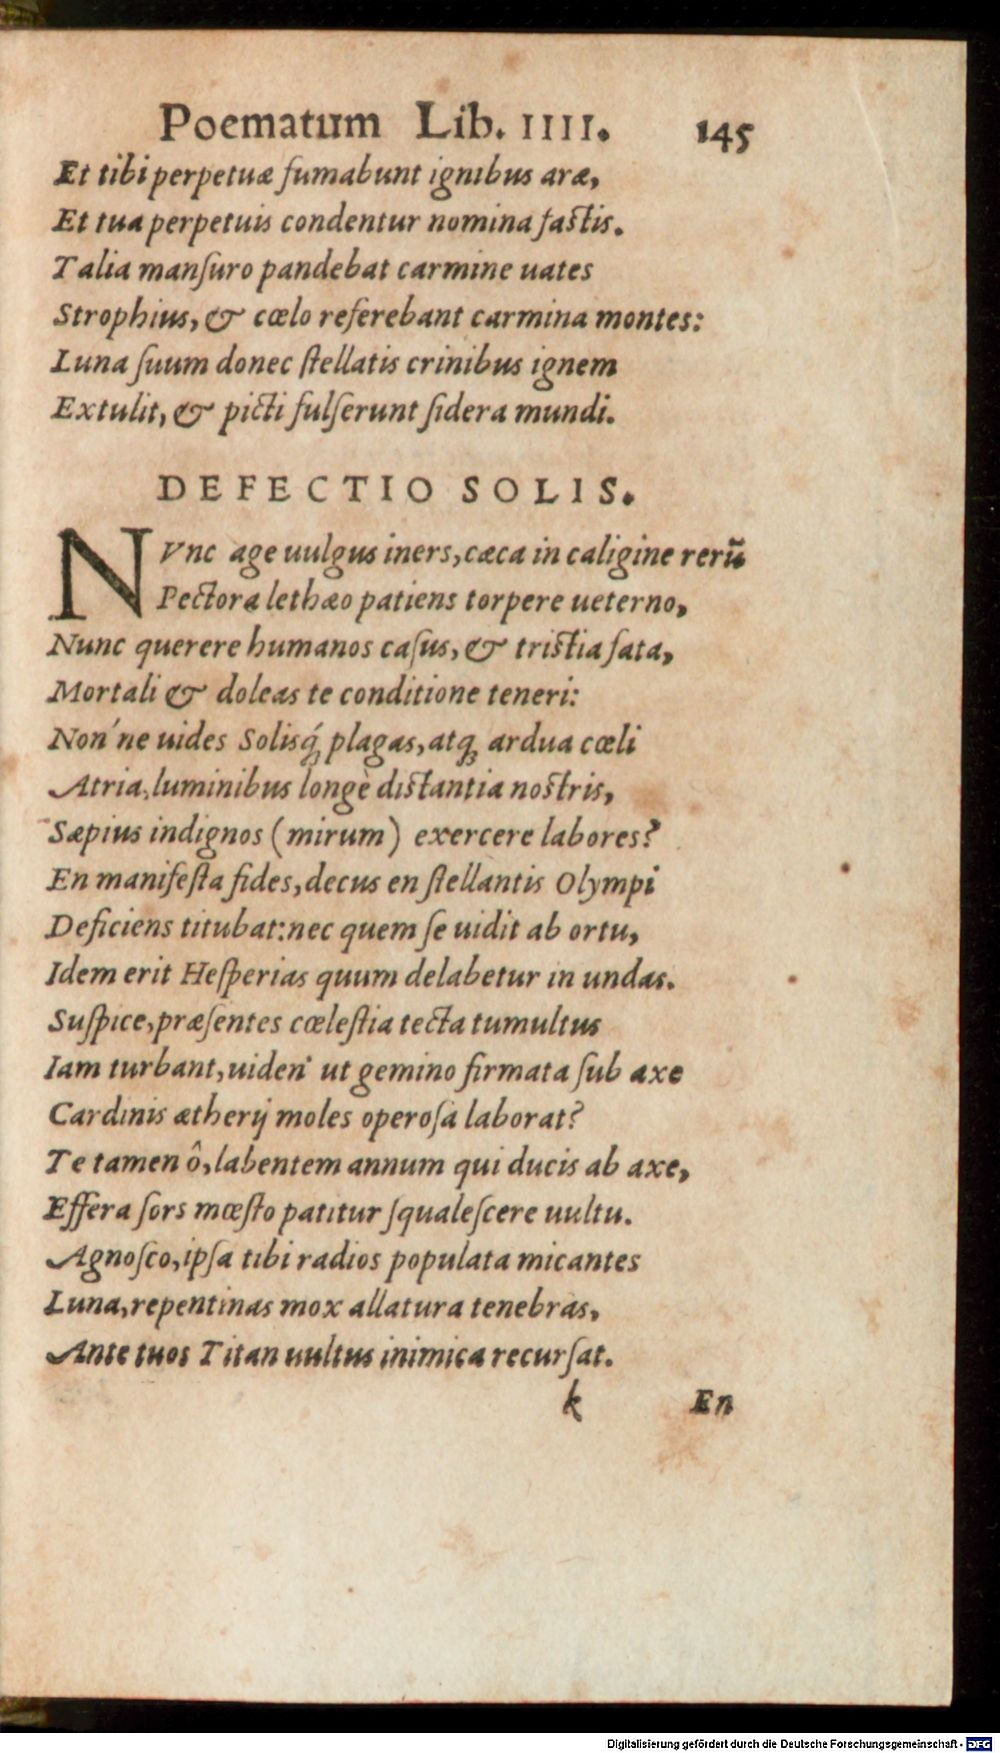 Poematum Lib. IIII. 145
Et tibi perpetuæ fumabunt ignibus aræ,
Et tua perpetuis condentur nomina fastis.
Talia manſuro pandebat carmine uates
Strophius, & cœlo referebant carmina montes:
Luna ſuum donec ſtellatis crinibus ignem
Extulit, & picti fulſerunt ſidera mundi.
DEFECTIO SOLIS.
NVnc age uulgus iners, cæca in caligine rerũ
Pectora lethæo patiens torpere ueterno,
Nunc querere humanos caſus, & tristia fata,
Mortali & doleas te conditione teneri:
Non'ne uides Solisq́; plagas, atq; ardua cœli
Atria, luminibus longè distantia nostris,
Sæpius indignos (mirum) exercere labores?
En manifeſta fides, decus en ſtellantis Olympi
Deficiens titubat: nec quem ſe uidit ab ortu,
Idem erit Heſperias quum delabetur in undas.
Suſpice, præſentes cœleſtia tecta tumultus
Iam turbant, uiden' ut gemino firmata ſub axe
Cardinis ætherij moles operoſa laborat?
Te tamen ô, labentem annum qui ducis ab axe,
Effera ſors mœſto patitur ſqualeſcere uultu.
Agnoſco, ipſa tibi radios populata micantes
Luna, repentinas mox allatura tenebras,
Ante tuos Titan uultus inimica recurſat.
k En
Digitalisierung gefördert durch die Deutsche Forschungsgemeinschaft - DFG